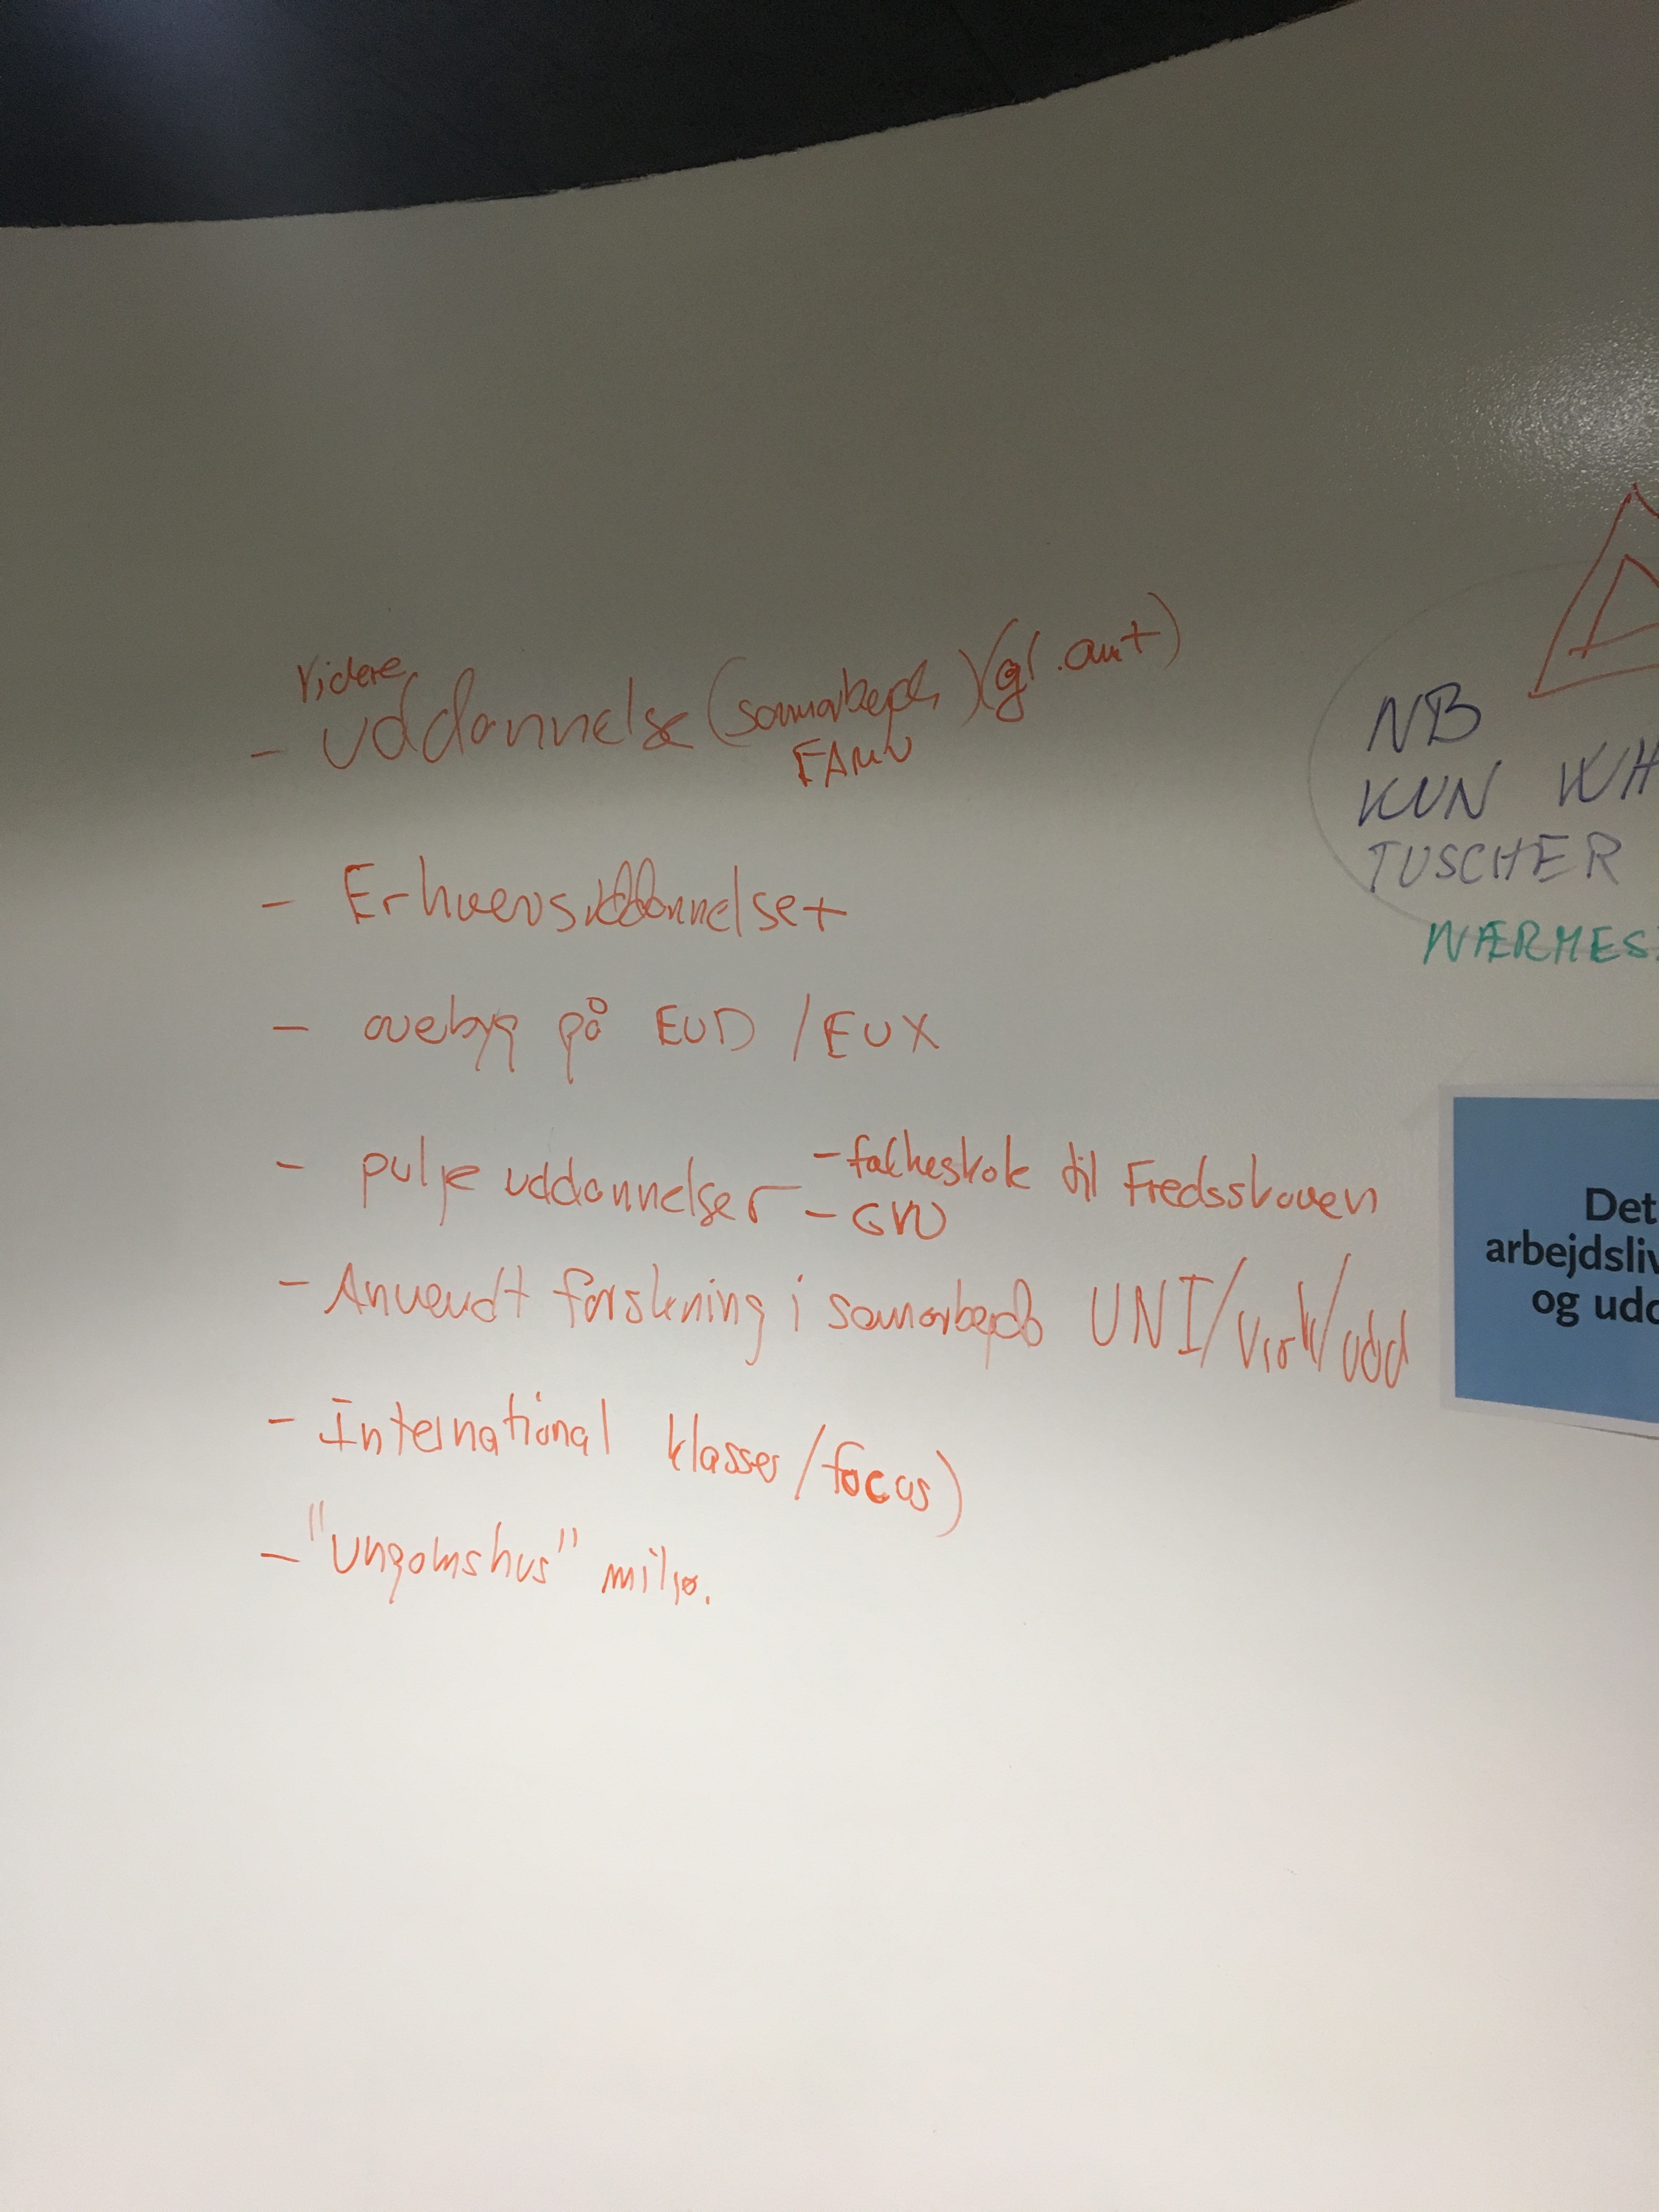 Videre
- uddannelse (samarbejde) (gl. amt)
- Erhvervsuddannelser
- ovebyg på EUD / EUX
- pulje uddannelser - falkeskole til Fredsskoven
- GVU
- Anvendt forskning i samarbejde UNI/Virk/udd
- International klasser/focus)
- "Ungomshus" miljø.
NB
KUN WH
TUSCHER
NÆRMES
Det
arbejdsliv
og udd